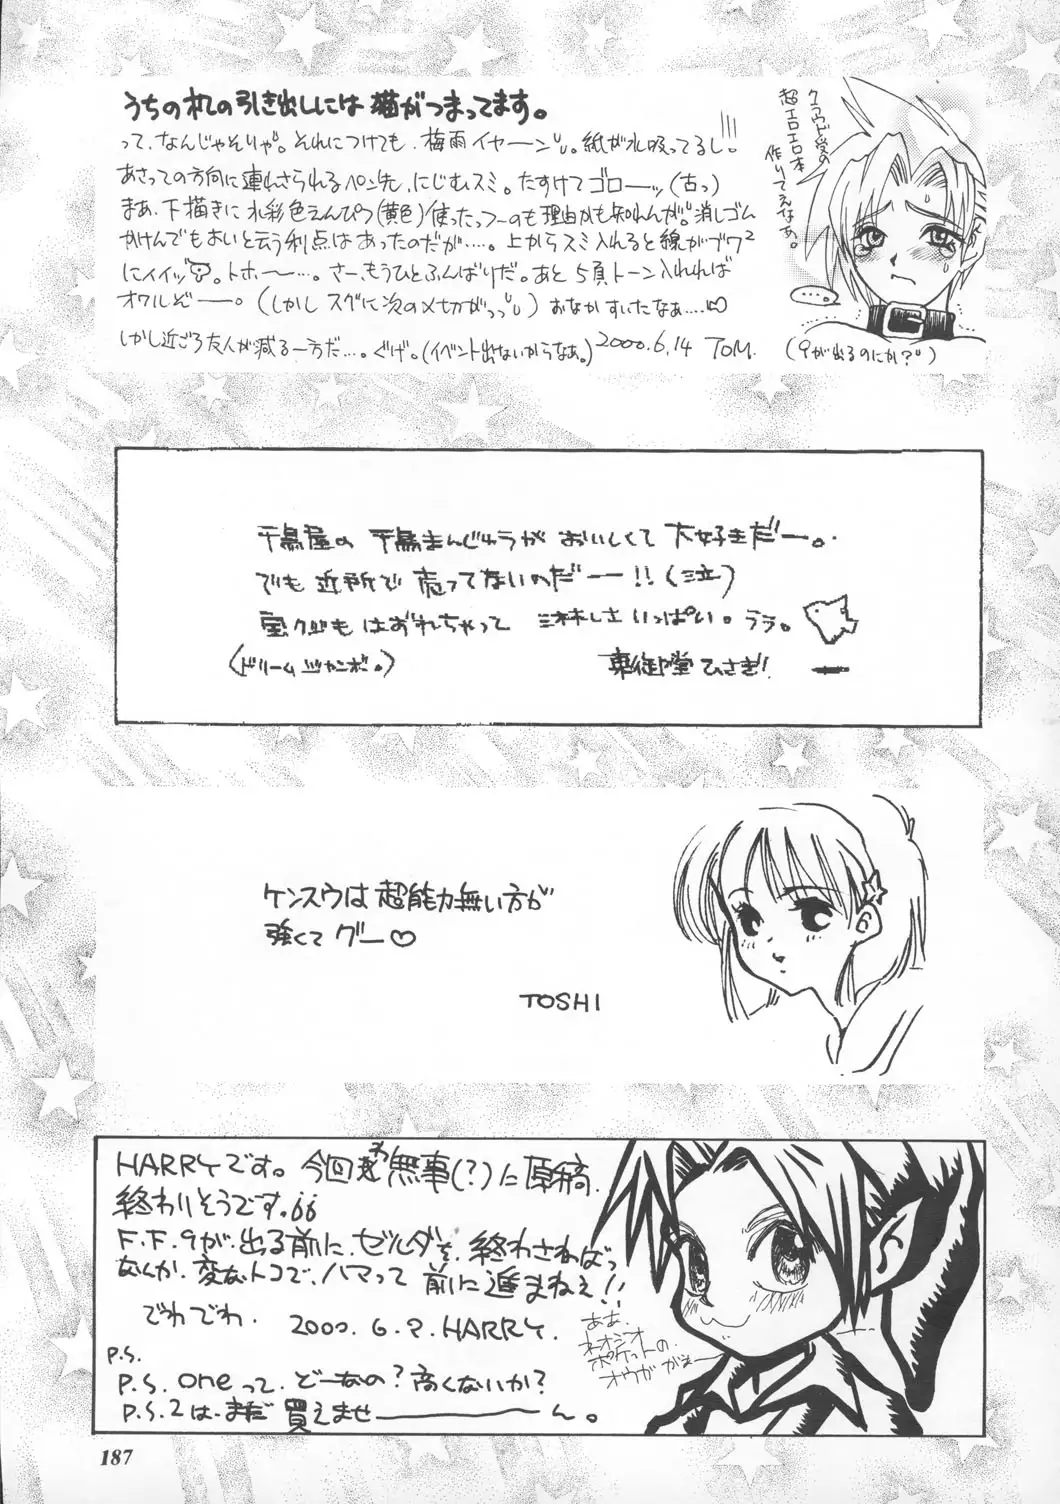 うちの机の引き出しには猫がつまってます。
って、なんじゃそりゃ。それにつけても、梅雨イヤーン。紙が水吸ってるし!!!
あさっての方向に連れさられるペン先、にじむスミ。たすけてゴローッ(古っ)
まあ、下描きに水彩色えんぴつ(黄色)使ったっつーのも理由かも知れんが。消しゴム
かけんでもよいと云う利点はあったのだが……。上からスミ入れると線がゴワ²
にイイッ?。トホー…。さー、もうひとふんばりだ。あと5頁トーン入れれば
オワルぞー。(しかしスグに次の〆切がっっ) おなかすいたなぁ……♡
しかし近ごろ友人が減る一方だ…。ぐげ。(イベント出ないからなぁ。)2000.6.14 TOM.
クラウド受の
超エロエロ本
作りてえなぁ。
……
(9が出るのにか?)
千鳥屋の千鳥まんじゅうがおいしくて大好きだー。
でも近所で売ってないのだー!!(泣)
宝クジもはずれちゃって淋しさいっぱい。ララ。
(ドリームジャンボ。)
東御堂ひさぎ!
ケンスウは超能力無い方が
強くてグー♡
TOSHI
HARRYです。今回わ無事(?)に原稿
終わりそうです。
F.F.9が出る前に、ゼルダを、終わさねばっ
なんか、変なトコで、ハマって前に進まねぇ!!
でわでわ. 2000.6.?.HARRY.
P.S.
P.S.oneって、どーなの?高くないか?
P.S.2は、まだ買えませーん。
ああ、
ネオジオ
ポケットの、
オウガがぁー
187